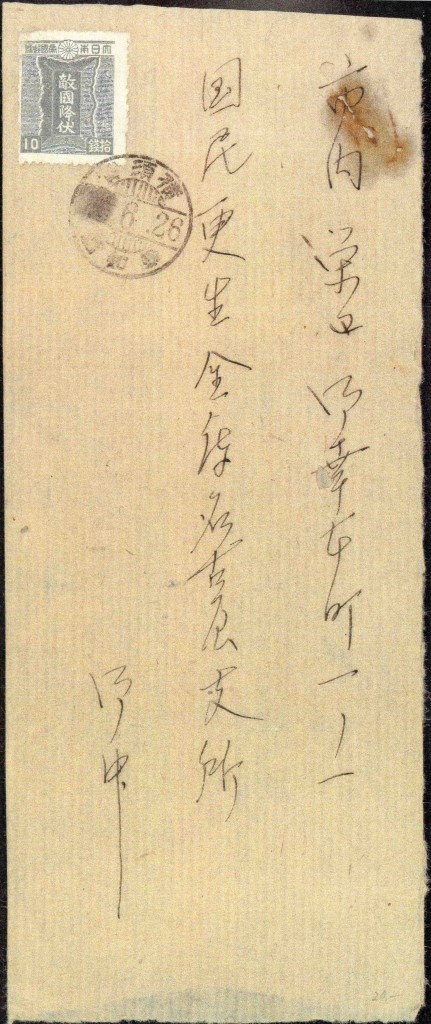 市内栄区御幸本町一ノ一
国民更生金庫名古屋支所
御中
大日本帝国郵便
敵國降伏
10
拾銭
6.26